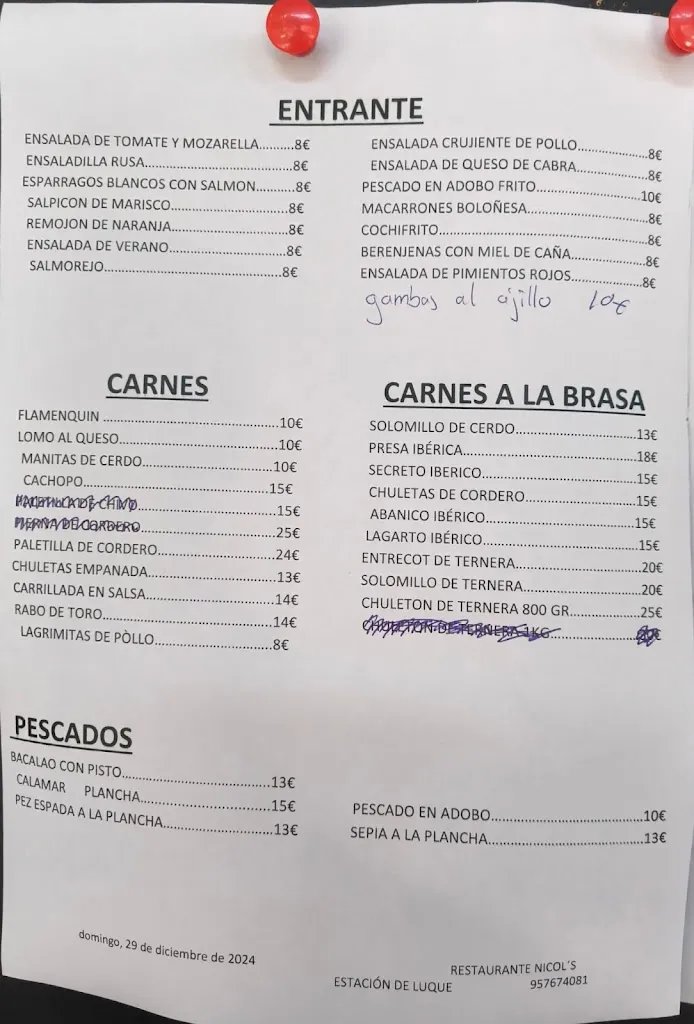 ENTRANTE
ENSALADA DE TOMATE Y MOZARELLA.........8€
ENSALADILLA RUSA....................................8€
ESPARRAGOS BLANCOS CON SALMON.........8€
SALPICON DE MARISCO.............................8€
REMOJON DE NARANJA.............................8€
ENSALADA DE VERANO..............................8€
SALMOREJO.............................................8€
ENSALADA CRUJIENTE DE POLLO..................8€
ENSALADA DE QUESO DE CABRA..................8€
PESCADO EN ADOBO FRITO...........................10€
MACARRONES BOLOÑESA..............................8€
COCHIFRITO......................................................8€
BERENJENAS CON MIEL DE CAÑA...................8€
ENSALADA DE PIMIENTOS ROJOS...................8€
gambas al ajillo 10€
CARNES
FLAMENQUIN .............................................10€
LOMO AL QUESO.........................................10€
MANITAS DE CERDO...................................10€
CACHOPO..................................................15€
...................................15€
PIERNA DE CORDERO...................................25€
PALETILLA DE CORDERO..............................24€
CHULETAS EMPANADA.................................13€
CARRILLADA EN SALSA.................................14€
RABO DE TORO............................................14€
LAGRIMITAS DE PÒLLO...............................8€
CARNES A LA BRASA
SOLOMILLO DE CERDO..............................13€
PRESA IBÉRICA...........................................18€
SECRETO IBERICO.......................................15€
CHULETAS DE CORDERO............................15€
ABANICO IBÉRICO......................................15€
LAGARTO IBÉRICO.......................................15€
ENTRECOT DE TERNERA...............................20€
SOLOMILLO DE TERNERA.............................20€
CHULETON DE TERNERA 800 GR.................25€
CHULETON DE TERNERA 1KG
PESCADOS
BACALAO CON PISTO....................................13€
CALAMAR PLANCHA................................15€
PEZ ESPADA A LA PLANCHA...........................13€
PESCADO EN ADOBO....................................10€
SEPIA A LA PLANCHA.....................................13€
domingo, 29 de diciembre de 2024
RESTAURANTE NICOL´S
ESTACIÓN DE LUQUE 957674081